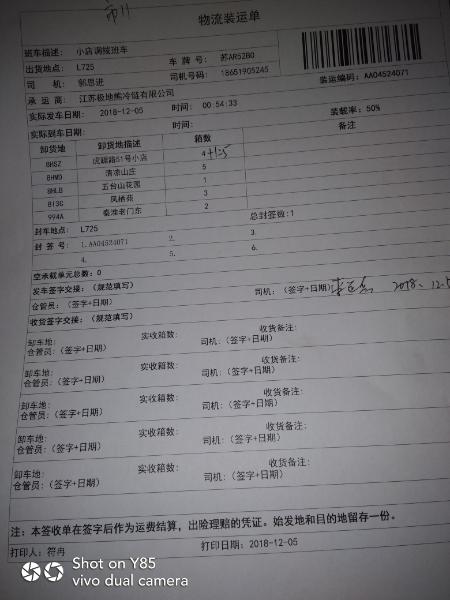 物流装运单
班车描述: 小店调绥班车
出货地点: L725 车 牌 号: 苏AR52B0
司 机: 郭思进 司机号码: 18651905245
承 运 商: 江苏极地熊冷链有限公司 装运编码: AA04524071
实际发车日期: 2018-12-05 时间: 00:54:33 装载率: 50%
实际到车日期: 时间:
卸货地 卸货地描述 箱数 备注
8HSZ 虎踞路51号小店 4
8HMD 清凉山庄 5
8HLB 五台山花园 1
8I3C 凤栖苑 3
994A 秦淮老门东 2
封车地点: L725 总封签数:1
封 签 号: 1.AA04524071 2. 3.
4. 5. 6.
空承载单元总数: 0
发车签字交接: (规范填写)
仓管员: (签字+日期) 司机: (签字+日期) 2018. 12.5
收货签字交接: (规范填写)
卸车地: 实收箱数: 收货备注:
仓管员: (签字+日期) 司机: (签字+日期)
卸车地: 实收箱数: 收货备注:
仓管员: (签字+日期) 司机: (签字+日期)
卸车地: 实收箱数: 收货备注:
仓管员: (签字+日期) 司机: (签字+日期)
卸车地: 实收箱数: 收货备注:
仓管员: (签字+日期) 司机: (签字+日期)
卸车地: 实收箱数: 收货备注:
仓管员: (签字+日期) 司机: (签字+日期)
注: 本签收单在签字后作为运费结算, 出险理赔的凭证。始发地和目的地留存一份。
打印人: 符冉 打印日期: 2018-12-05
Shot on Y85
vivo dual camera